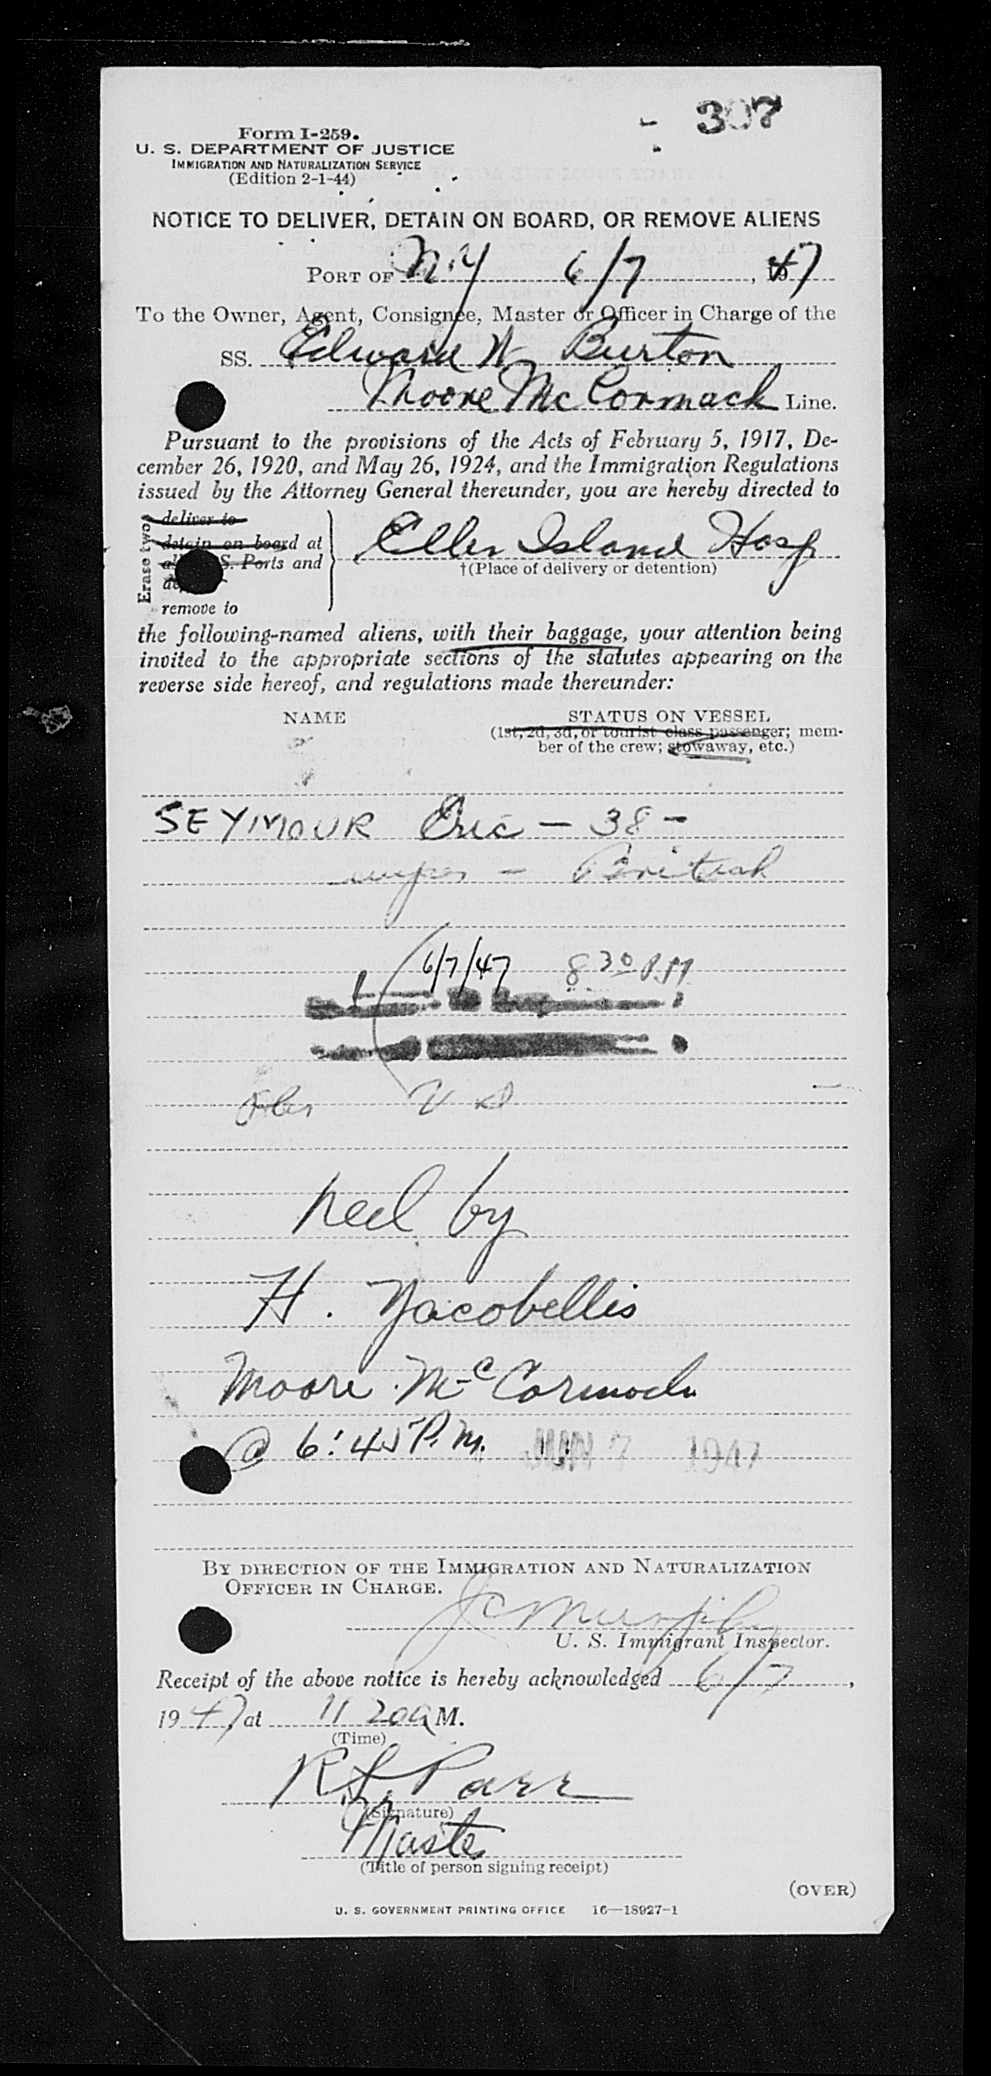 - 307
Form I-259.
U. S. DEPARTMENT OF JUSTICE
IMMIGRATION AND NATURALIZATION SERVICE
(Edition 2-1-44)
NOTICE TO DELIVER, DETAIN ON BOARD, OR REMOVE ALIENS
PORT OF N.Y 6/7, 1947
To the Owner, Agent, Consignee, Master or Officer in Charge of the
SS. Edward W Burton
Moore McCormack Line.
Pursuant to the provisions of the Acts of February 5, 1917, De-
cember 26, 1920, and May 26, 1924, and the Immigration Regulations
issued by the Attorney General thereunder, you are hereby directed to
Erase two
deliver to
detain on board at
S. Ports and
remove to
Ellis Island Hosp
†(Place of delivery or detention)
the following-named aliens, with their baggage, your attention being
invited to the appropriate sections of the statutes appearing on the
reverse side hereof, and regulations made thereunder:
NAME STATUS ON VESSEL
(1st, 2d, 3d, or tourist class passenger; mem-
ber of the crew; stowaway, etc.)
SEYMOUR Eric - 38 -
wiper - British
6/7/47 8 30 P.M
Recd by
H. Yacobellis
Moore McCormack
@ 6:45 P.M. JUN 7 1947
BY DIRECTION OF THE IMMIGRATION AND NATURALIZATION
OFFICER IN CHARGE.
J C Murphy
U. S. Immigrant Inspector.
Receipt of the above notice is hereby acknowledged 6/7,
1947 at 11 20 a M.
(Time)
R. L. Parr
(Signature)
Master
(Title of person signing receipt)
(OVER)
U. S. GOVERNMENT PRINTING OFFICE 16—18927-1